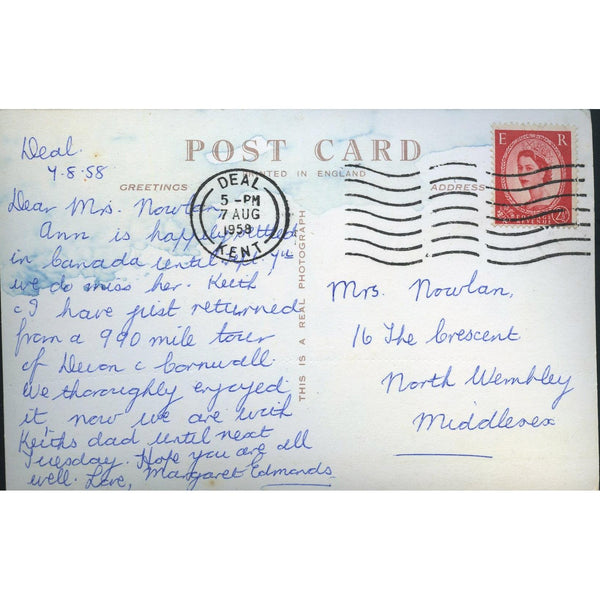 POST CARD
PRINTED IN ENGLAND
GREETINGS
ADDRESS
THIS IS A REAL PHOTOGRAPH
DEAL
5 - PM
7 AUG
1958
KENT
E R
Deal.
7.8.58
Dear Mrs. Nowlan,
Ann is happily settled
in Canada until 9th
we do miss her. Keith
& I have just returned
from a 990 mile tour
of Devon & Cornwall.
We thoroughly enjoyed
it, now we are with
Keiths dad until next
Tuesday. Hope you are all
well. Love, Margaret Edmonds
Mrs. Nowlan,
16 The Crescent
North Wembley
Middlesex